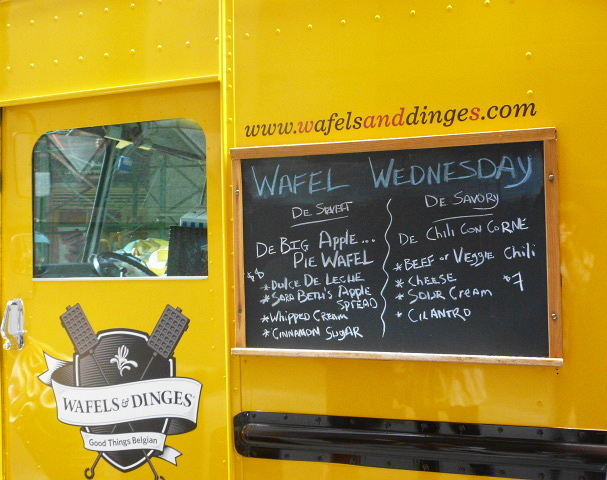 www.wafelsanddinges.com
WAFEL WEDNESDAY
DE SWEET
DE BIG APPLE...
PIE WAFEL
$8
* DULCE DE LECHE
* SARA BETH'S APPLE
SPREAD
* WHIPPED CREAM
* CINNAMON SUGAR
DE SAVORY
DE CHILI CON CORNE
* BEEF or VEGGIE CHILI
* CHEESE
$7
* SOUR CREAM
* CILANTRO
WAFELS & DINGES
Good Things Belgian